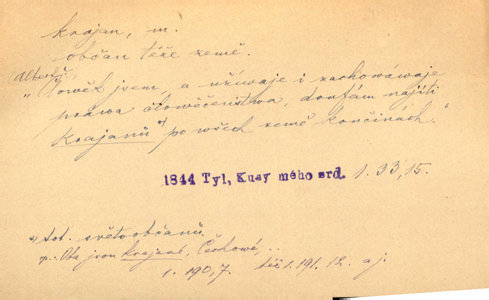 krajan, m.
občan téže země.
Albert:
"Čowěk jsem, a užíwaje i zachowáwaje
práwa člowěčenstwa, doufám najíti
krajanů*) po wšech země končinách."
1844 Tyl, Kusy mého srd. 1. 33, 15.
*) tot. světoobčanů
Oba jsou krajané, Čechowé, ..
1. 190, 7. též 1. 191. 12. aj.